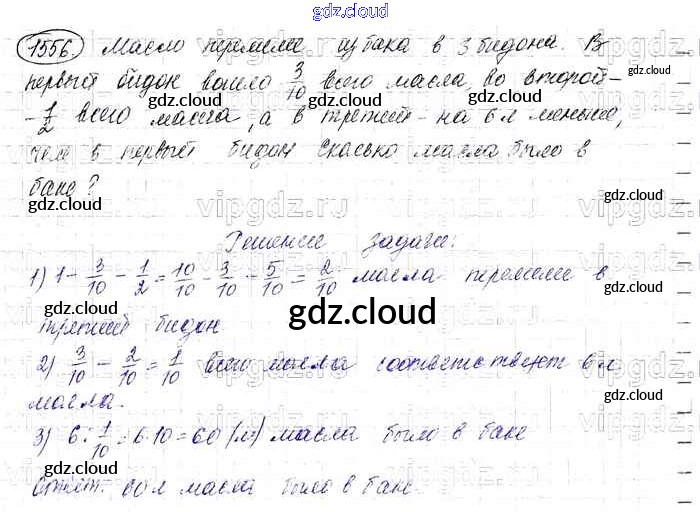 gdz.cloud
1556. Масло перелили из бака в 3 бидона. В
первый бидон вошло 3/10 всего масла, во второй -
- 1/2 всего масла, а в третий - на 6 л меньше,
чем в первый бидон. Сколько масла было в
баке?
Решение задачи:
1) 1 - 3/10 - 1/2 = 10/10 - 3/10 - 5/10 = 2/10 масла перелили в
третий бидон
2) 3/10 - 2/10 = 1/10 всего масла соответствует 6 л
масла.
3) 6 : 1/10 = 6·10 = 60 (л) масла было в баке
Ответ: 60 л масла было в баке.
gdz.cloud
gdz.cloud
gdz.cloud
gdz.cloud
gdz.cloud
gdz.cloud
gdz.cloud
gdz.cloud
gdz.cloud
gdz.cloud
gdz.cloud
vipgdz.ru
vipgdz.ru
vipgdz.ru